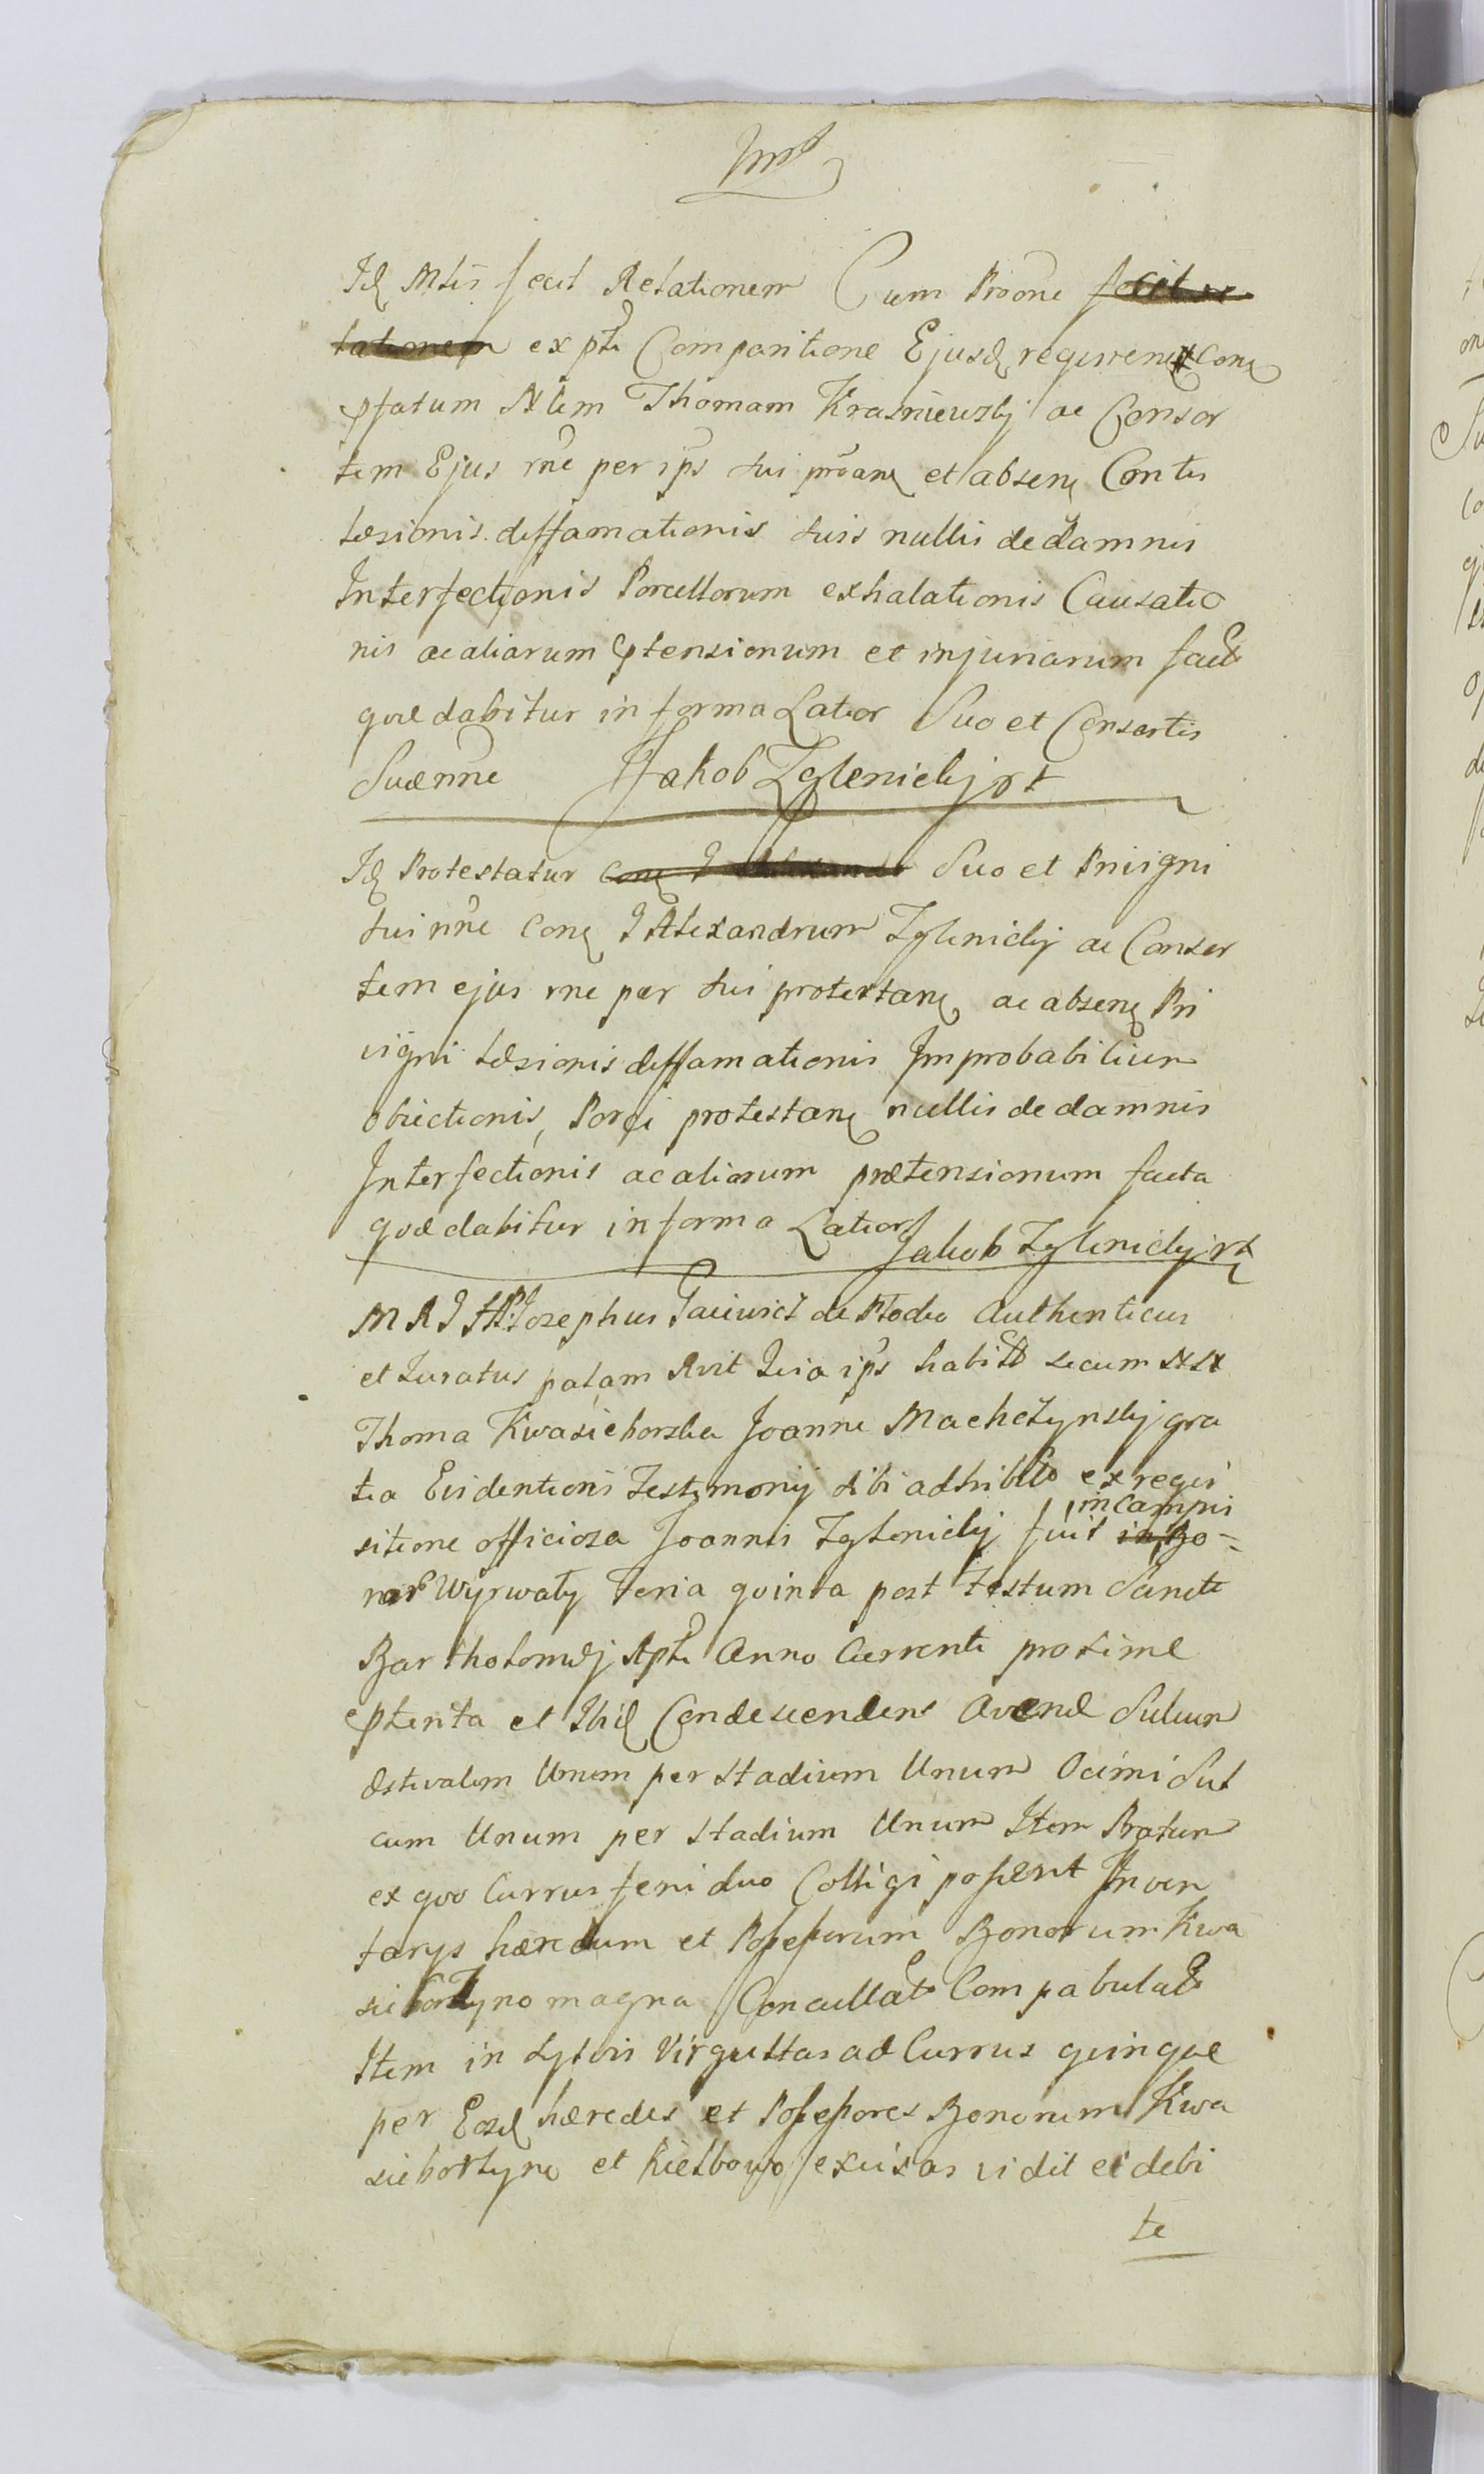 Id Mtis fecit Relationem Cum Prone fecit re
lationem ex pte Comparitione Ejusd requiren con
pfatum Nlem Thomam Krasniewsky ac Consor
tem Ejus rne per ips sui proan et absen Contis
læsionis diffamationis suis nullis de damnis
Interfectionis Porcellorum exhalationis Causatio
nis ac aliarum ptensionum et injuriarum fact
quæ dabitur in forma Latior Suo et Consortis
Suæ nne Jakob Zglenickij
Id Protestatur con J Alexand Suo et Privigni
sui nne con J Alexandrum Zglenickij ac Consor
tem ejus rne per sui protestan ac absen Pri
vigni læsionis diffamationis Improbabilium
obiectionis, Porci protestan nullis de damnis
Interfectionis ac aliarum prætensionum facta
quæ dabitur in forma Latior Jakob Zglenickij
Josephus de Authenticus
et Juratus palam Rvit Quia ips habit secum
Thoma Kwasieborska Joanne Machczynskij gra
tia Evidentioris Testimonij sibi adhibit ex requi
sitione officiosa Joannis Zglenickij fuit in Bo=
in Campis
nor Wyrwały Feria quinta post Festum Sancti
Bartholomæj Apti Anno Currenti proxime
pterita et Ibid Condescendens Avenæ Sulcum
æstivalem Unum per stadium Unum Ocimi Sul
cum Unum per stadium Unum Item Pratum
ex quo Currus feni duo Colligi possent Inven
tarys hæredum et Possessorum Bonorum Kwa
sieborzyno magna Conculcat Compabulat
Item in Sylvis Virgultas ad Currus quinque
per Eosd hæredes et Possessores Bonorum Kwa
sieborzyno et Kiełbowo excisas vidit et debi
te